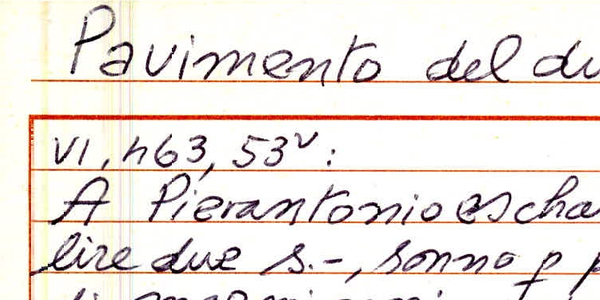 Pavimento del du
VI, 463, 53v:
A Pierantonio escha
lire due s.-, sonno p p